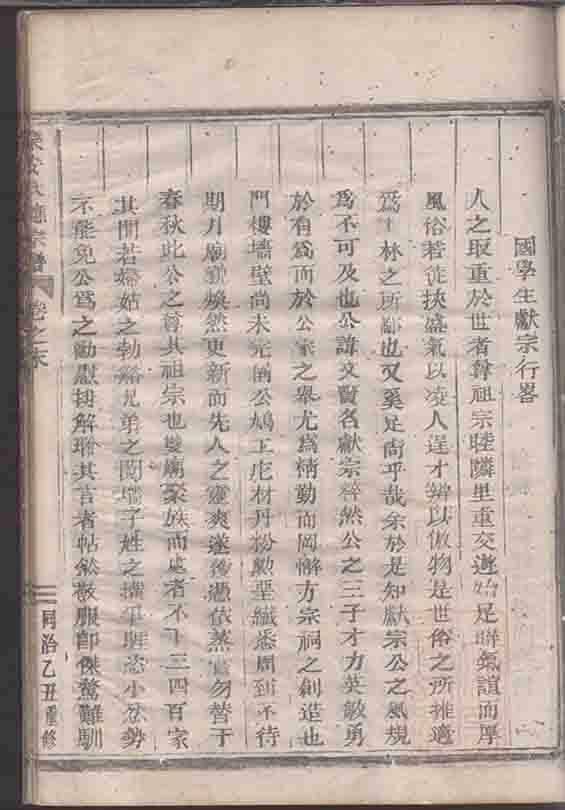 國學生獻宗行畧
人之取重於世者尊祖宗睦隣里重交遊始足聯氣誼而厚
風俗若徒挾盛氣以凌人逞才辨以傲物是世俗之所推適
爲士林之所鄙也又奚足尚乎哉余於是知獻宗公之風規
爲不可及也公諱文賢名獻宗粹然公之三子才力英敏勇
於有爲而於公家之舉尤爲精勤而罔懈方宗祠之創造也
門樓墻壁尚未完備公鳩工庀材丹粉勲堊纖悉周到不待
期月廟貌煥然更新而先人之靈爽遂獲憑依蒸嘗勿替于
春秋此公之尊其祖宗也雙廟聚族而處者不下三四百家
其間若婦姑之勃谿兄弟之鬩墻子姓之攘爭睚忿小忿勢
不能免公爲之勸慰排解聆其言者帖然敬服卽傑驁難馴
宗譜
卷之末
同治乙丑重修